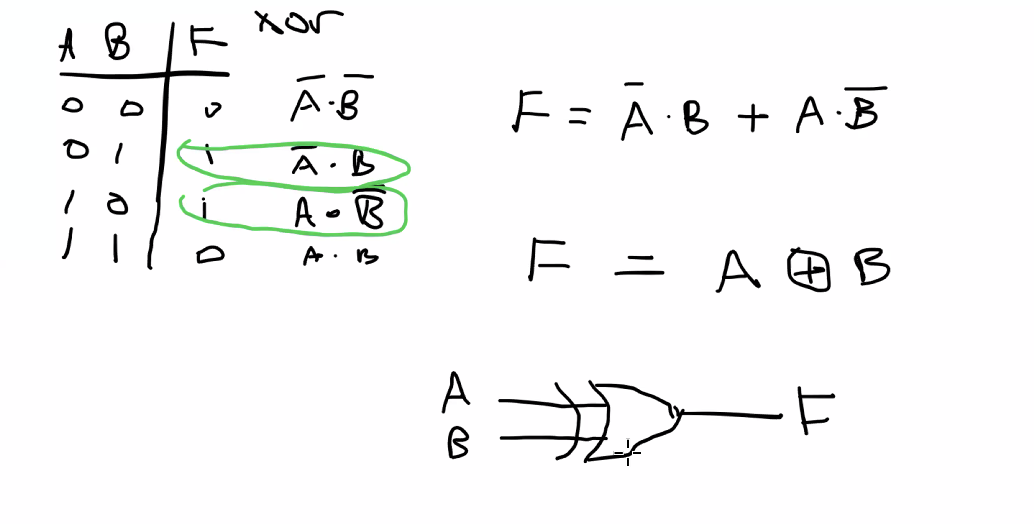 A B F xor
0 0 0 A̅·B̅
0 1 1 A̅·B
1 0 1 A·B̅
1 1 0 A·B
F = A̅·B + A·B̅
F = A ⊕ B
A
B
F